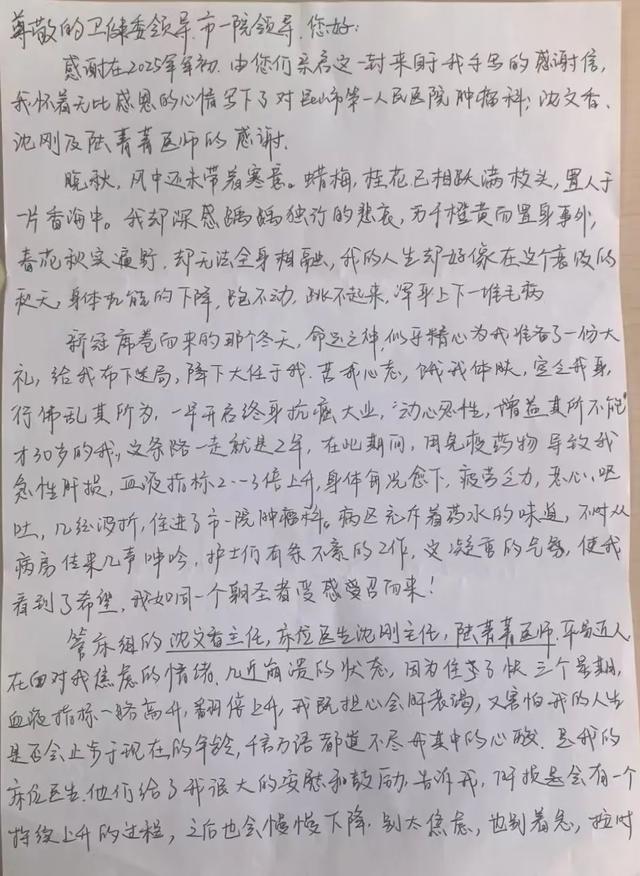 尊敬的卫健委领导.市一院领导.您好:
感谢在2025年年初.由您们亲启这一封来自于我手写的感谢信,
我怀着无比感恩的心情写下了对昆山市第一人民医院肿瘤科:沈文香、
沈刚及陆菁菁医师的感谢.
晚秋,风中还未带着寒意。蜡梅,桂花已相跃满枝头,置人于
一片香海中。我却深感蝺蝺独行的悲哀,万千橙黄而置身事外,
春花秋实遍野.却无法全身相融,我的人生却好像在这个衰败的
秋天,身体机能的下降,跑不动,跳不起来,浑身上下一堆毛病
新冠席卷而来的那个冬天,命运之神,似乎精心为我准备了一份大
礼,给我布下迷局,降下大任于我.苦我心志,饿我体肤,空乏我身,
行佛乱其所为,一早开启终身抗癌大业,"动心忍性,增益其所不能"
才30岁的我,这条路一走就是2年,在此期间,用免疫药物导致我
急性肝损,血液指标2--3倍上升,身体每况愈下,疲劳乏力,恶心,呕
吐,几经波折,住进了市一院肿瘤科。病区充斥着药水的味道,不时从
病房传来几声呻吟,护士们有条不紊的工作,这凝重的气氛,使我
看到了希望,我如同一个朝圣者受感受召而来!
管床组的沈文香主任,床位医生沈刚主任,陆菁菁医师.平易近人
在面对我焦虑的情绪.几近崩溃的状态,因为住了快三个星期,
血液指标一路高升,翻倍上升,我既担心会肝衰竭,又害怕我的人生
是否会止步于现在的年龄,千言万语都道不尽我其中的心酸.是我的
床位医生.他们给了我很大的安慰和鼓励.告诉我,肝损是会有一个
持续上升的过程,之后也会慢慢下降.别太焦虑,也别着急,按时